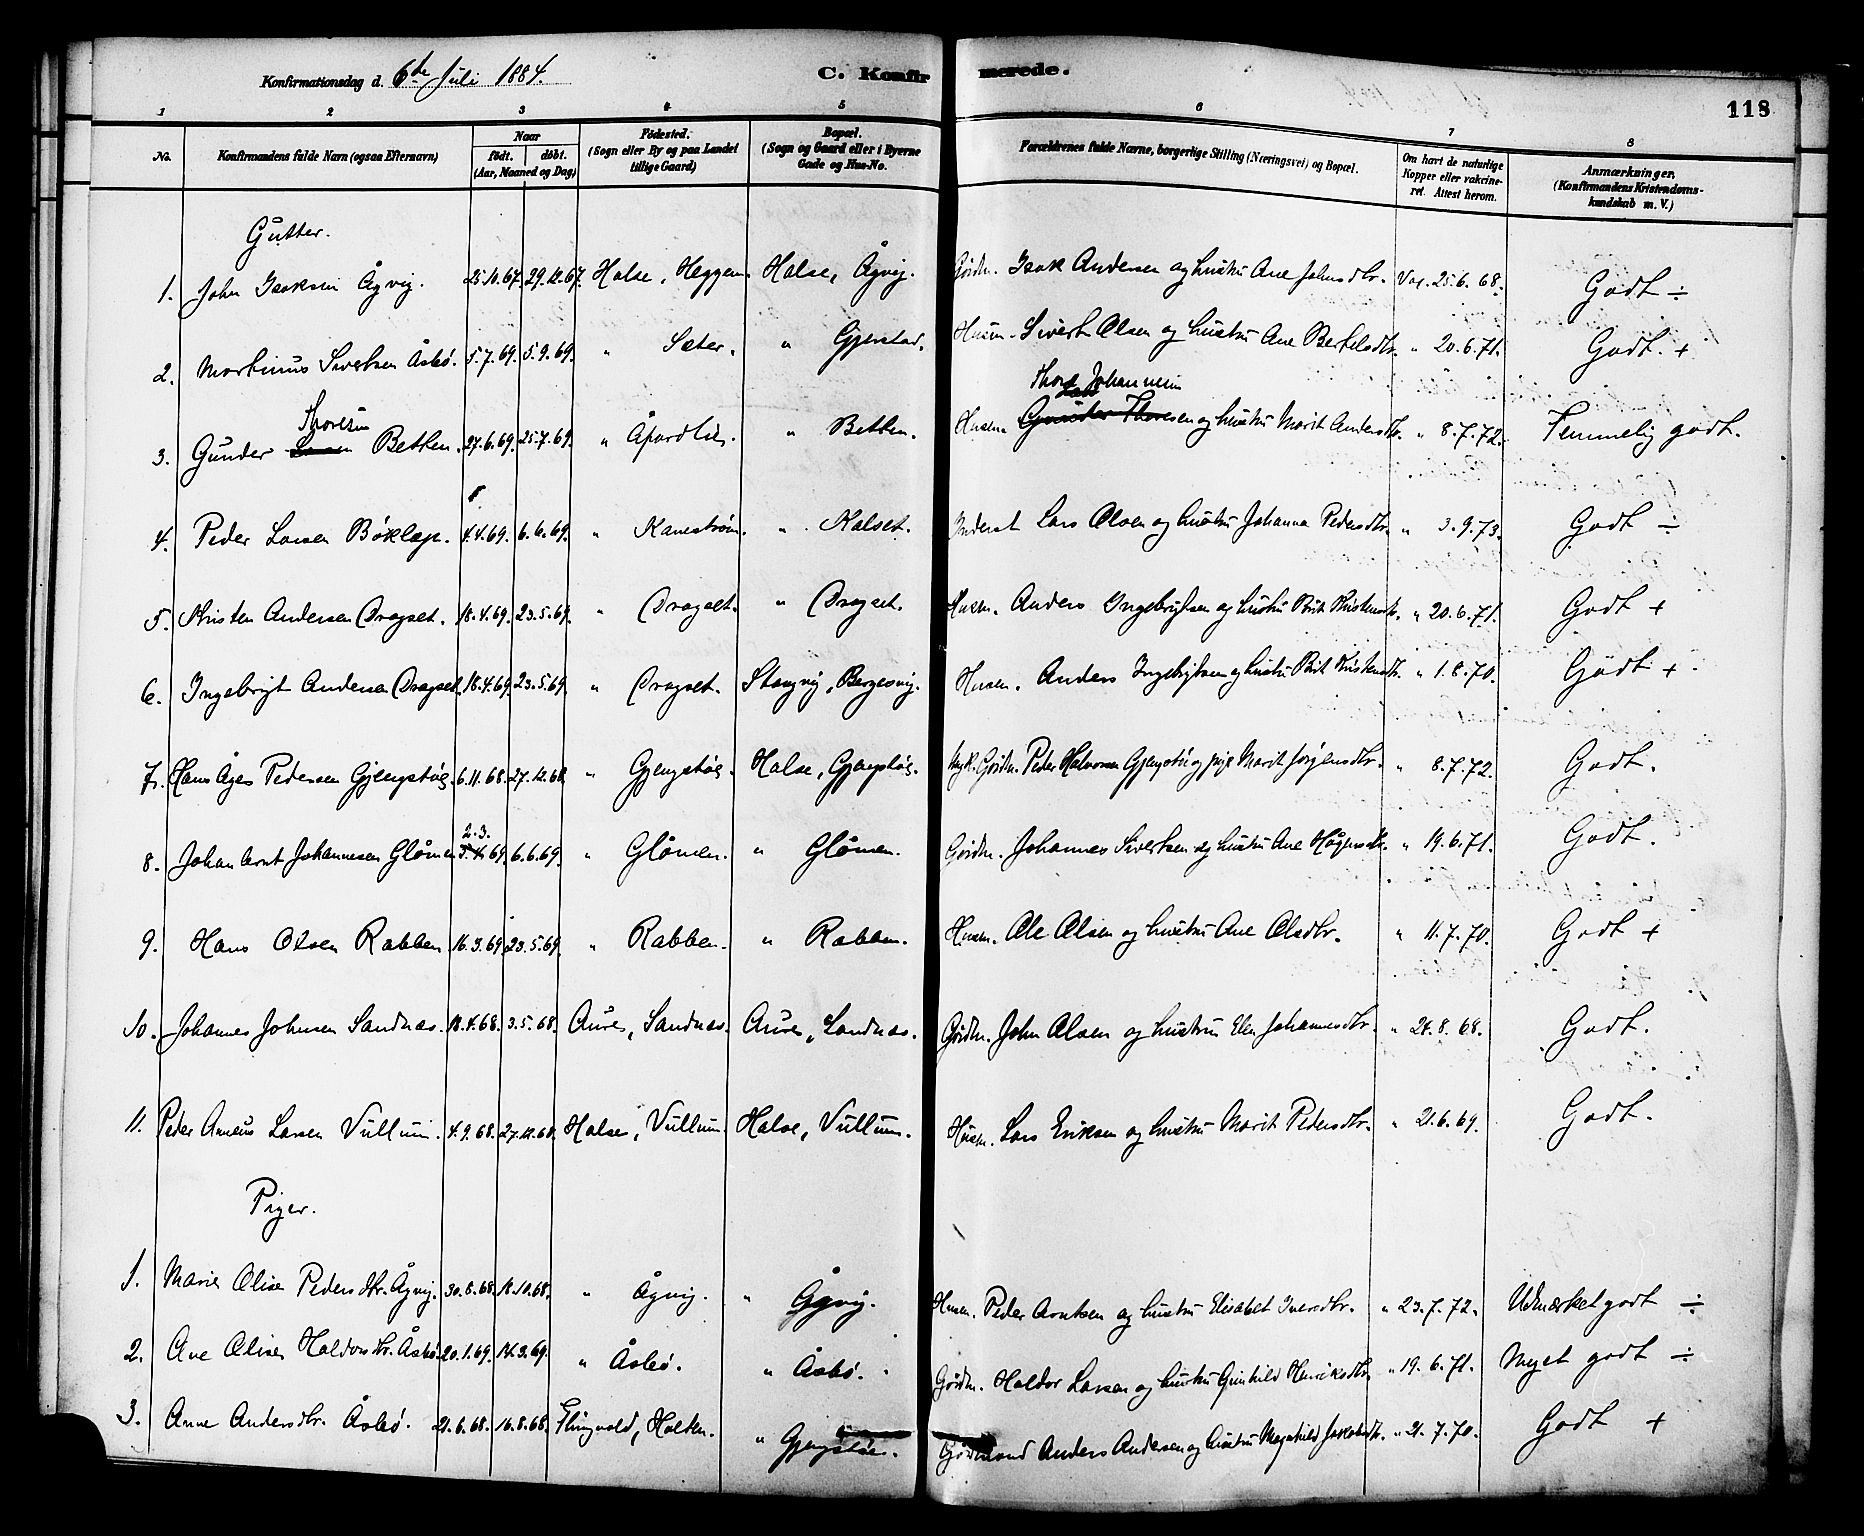 Konfirmationsdag d. 6te Juli 1884. C. Konfirmerede. 118
1 2 3 4 5 6 7 8
No. Konfirmandens fulde Navn (ogsaa Efternavn) Naar født. døbt. (Aar, Maaned og Dag) Fødested. (Sogn eller By og paa Landet tillige Gaard) Bopæl. (Sogn og Gaard eller i Byerne Gade og Hus-No. Forældrenes fulde Navne, borgerlige Stilling (Næringsvei) og Bopæl. Om havt de naturlige Kopper eller vakcineret. Attest herom. Anmærkninger. (Konfirmandens Kristendomskundskab m. V.)
Gutter.
1. John Isaksen Ågvig. 25.10.67. 29.12.67. Halse, Heggem. Halse, Ågvig. Gårdm. Isak Andersen og hustru Ane Johnsdtr. Vac. 25.6.68. Godt ÷
2. Martinus Sivertsen Åsbø. 5.7.69. 5.9.69. " Sæter. " Gjerstad. Husm. Sivert Olsen og hustru Ane Bertelsdtr. " 20.6.71. Godt. +
Thoresen Thore Johannesen
3. Gunder Larsen Betten. 27.6.69. 25.7.69. " Åfardlie. " Betten. Husm. Gunder Thoresen og hustru Marit Andersdtr. " 8.7.72. Temmelig godt.
4. Peder Larsen Bøklep. 4.4.69. 6.6.69. " Kanestrøm. " Kalset. Inderst Lars Olsen og hustru Johanna Pedersdtr. " 3.9.73. Godt ÷
5. Kristen Andersen Dragset. 18.4.69. 23.5.69. " Dragset. " Dragset. Husm. Anders Ingebrigtsen og hustru Brit Kristensdtr. " 20.6.71. Godt +
6. Ingebrigt Andersen Dragset. 18.4.69. 23.5.69. " Dragset. Stangvig, Bergesvig. Husm. Anders Ingebrigtsen og hustru Brit Kristensdtr. " 1.8.70. Godt +
7. Hans Åges Pedersen Gjengstøe. 6.11.68. 27.12.68. " Gjengstøe. Halse, Gjengstøe. Gårdm. Peder Halvorsen Gjengstøe og pige Marit Jørgensdtr. " 8.7.72. Godt.
2.3.
8. Johan Arnt Johannesen Glåmen 5.4.69. 6.6.69. " Glåmen. " Glåmen. Gårdm. Johannes Sivertsen og hustru Ane Hågensdtr. " 19.6.71. Godt.
9. Hans Olsen Rabben 16.3.69. 23.5.69. " Rabben. " Rabben. Husm. Ole Olsen og hustru Ane Olsdtr. " 11.7.70. Godt +
10. Johannes Johnsen Sandnæs. 18.4.68. 3.5.68. Aure, Sandnæs. Aure, Sandnæs. Gårdm. John Olsen og hustru Elen Johannesdtr. " 28.8.68. Godt.
11. Peder Anneus Larsen Vullum. 4.9.68. 27.12.68. Halse, Vullum Halse, Vullum. Husm. Lars Eriksen og hustru Marit Pedersdtr. " 21.6.69. Godt.
Piger.
1. Marie Olise Pedersdtr. Ågvig. 30.8.68. 18.10.68. " Ågvig. " Ågvig. Husm. Peder Arntsen og hustru Elisabet Iversdtr. " 23.7.72. Udmærket godt ÷
2. Ane Olise Haldorsdtr. Åsbø. 20.1.69. 14.3.69. " Åsbø. " Åsbø. Gårdm. Haldor Larsen og hustru Gunhild Henriksdtr. " 19.6.71. Meget godt ÷
3. Anne Andersdtr. Åsbø. 21.6.68. 16.8.68. Thingvold, Holten. " Gjengstøe. Gårdmand Anders Andersen og hustru Magnhild Jakobsdtr. " 21.7.70. Godt +